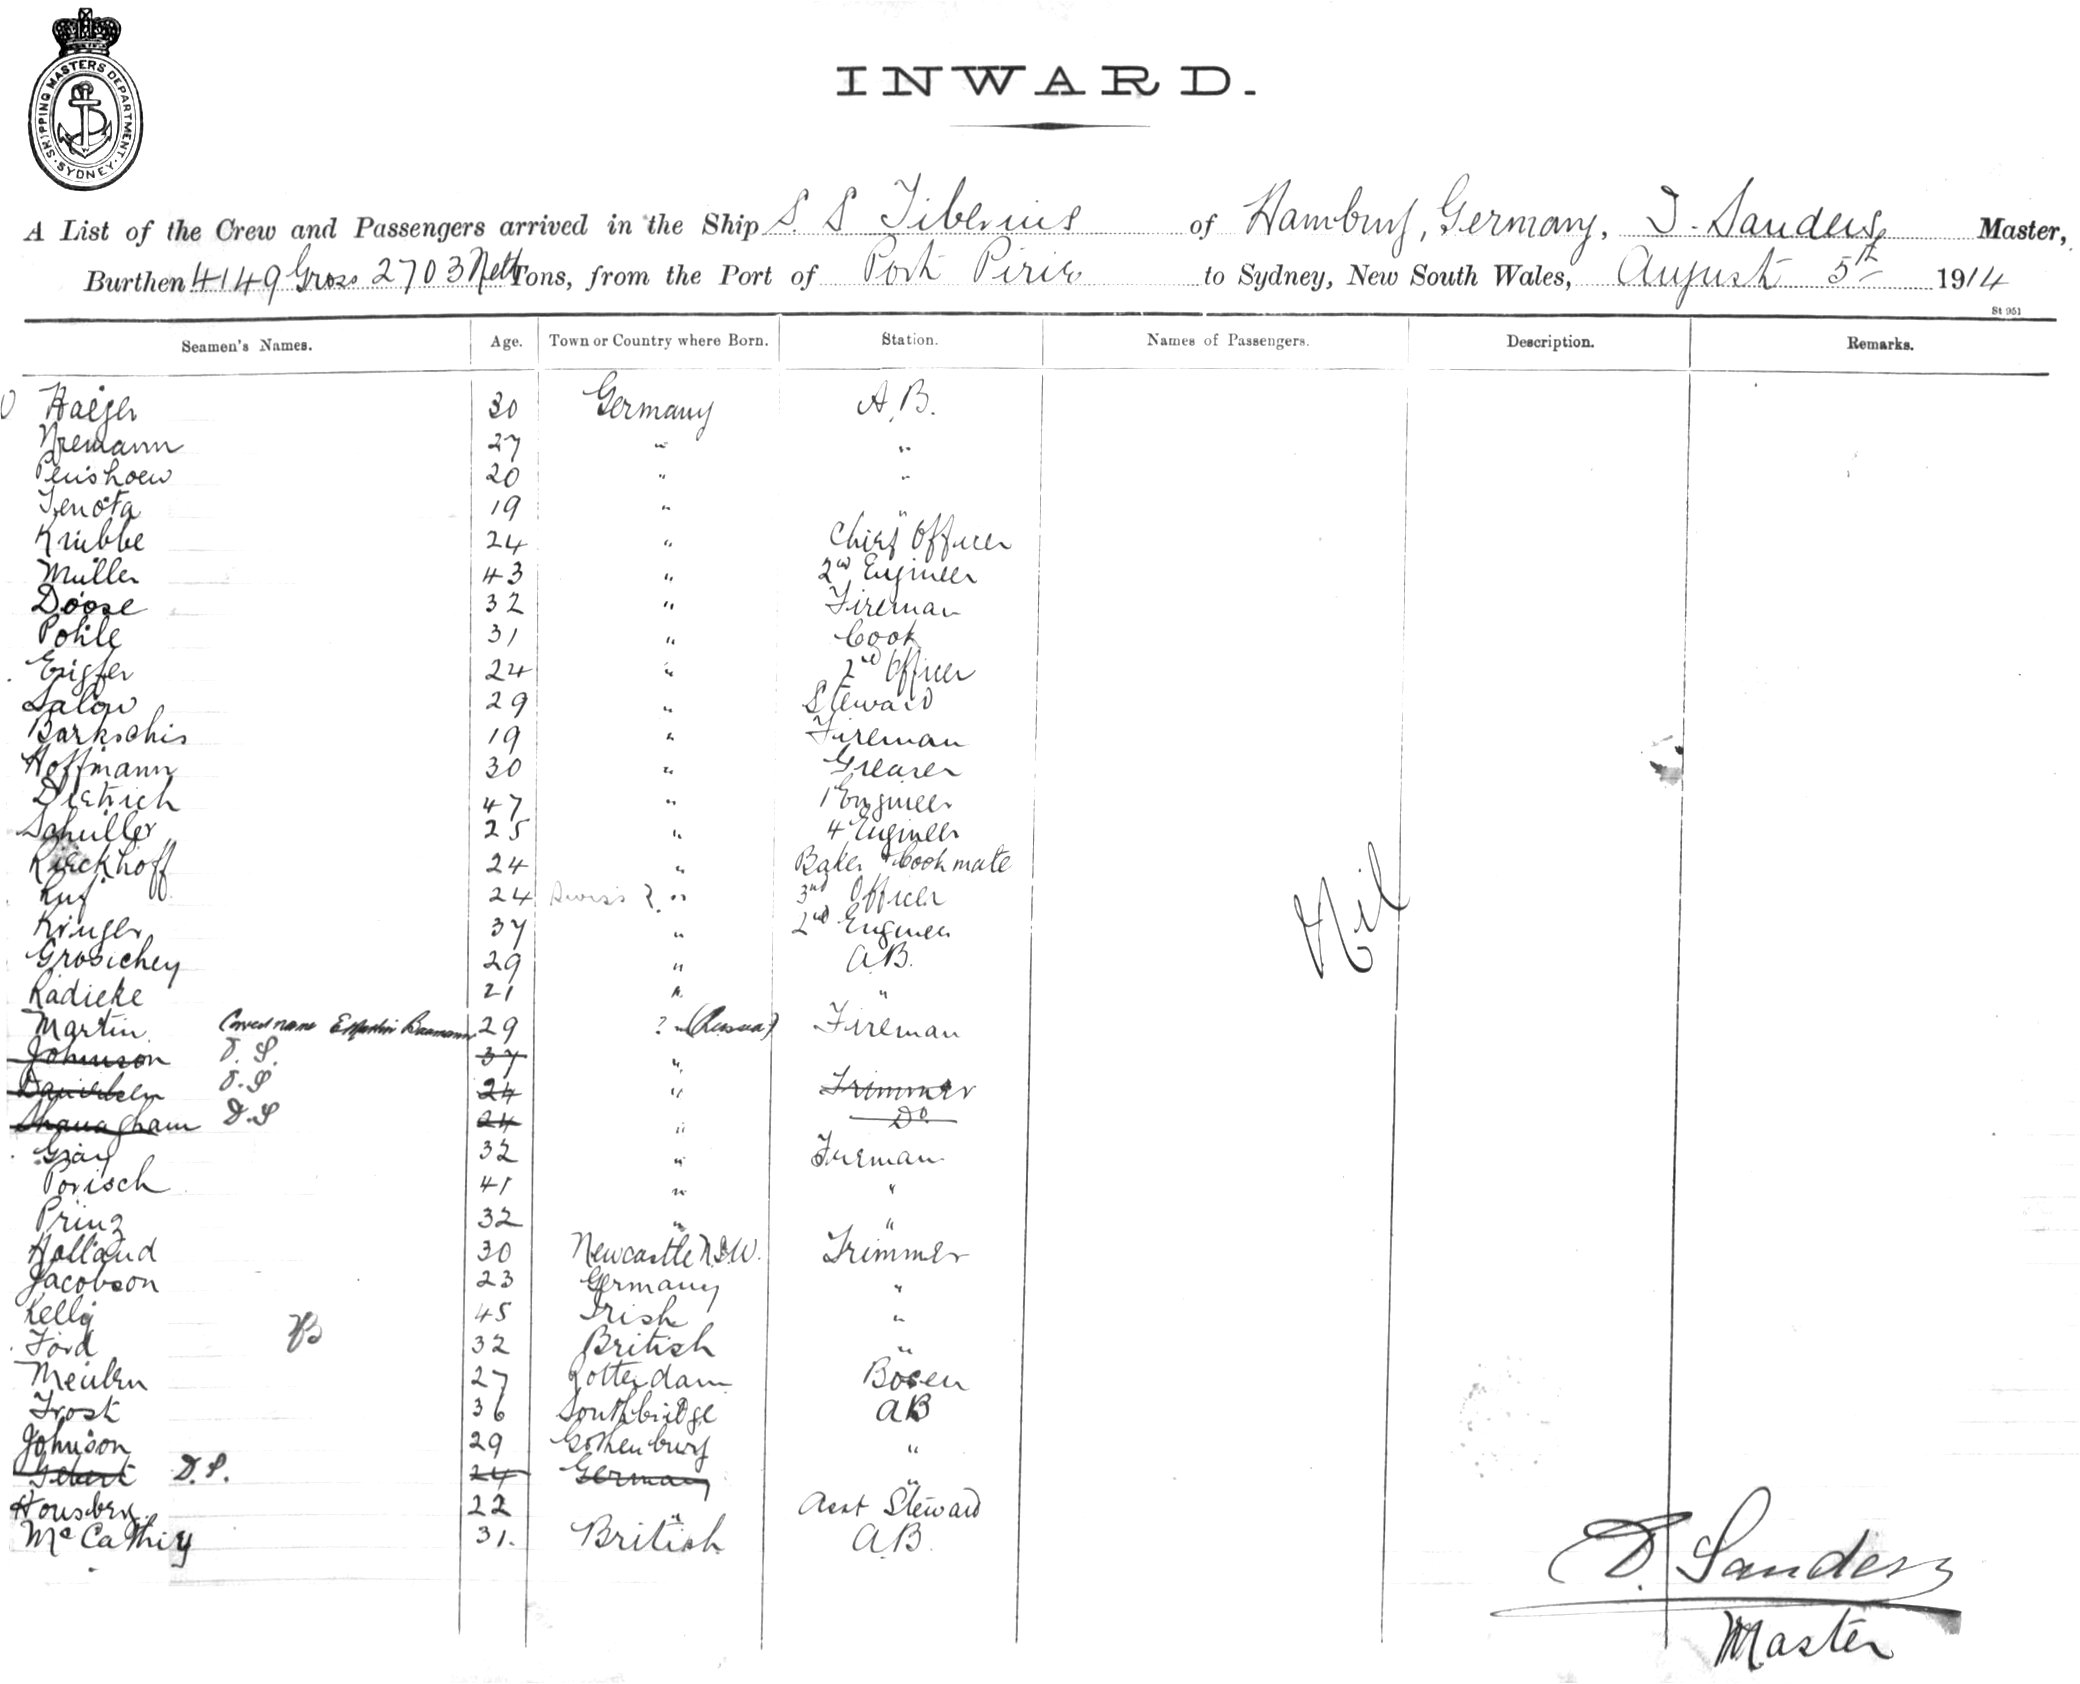 SHIPPING MASTERS DEPARTMENT · SYDNEY ·
INWARD.
A List of the Crew and Passengers arrived in the Ship S. S Tiberius of Hamburg, Germany, D. Sanders Master,
Burthen 4149 Gross 2703 Nett Tons, from the Port of Port Pirie to Sydney, New South Wales, August 5th 1914
St 951
Seamen's Names. Age. Town or Country where Born. Station. Names of Passengers. Description. Remarks.
Haeger 30 Germany A.B.
Niemann 27 " "
20 " "
19 " "
Krubbe 24 " Chief Officer
Müller 43 " 2nd Engineer
Doose 32 " Fireman
Pohle 31 " Cook
24 " 2nd Officer
Salow 29 " Steward
Barkschis 19 " Fireman
Hoffmann 30 " Greaser
Dietrich 47 " 1 Engineer
Schuller 25 " 4 Engineer
Kieckhoff 24 " Baker & Cookmate
Ruf 24 Swiss ? " 3rd Officer
Kruger 37 " 2nd Engineer
Grosichey 29 " A.B.
Radieke 21 " "
Martin Correct name E Martin Baumann 29 ? " (Russia) Fireman
Johnson D.S. 37 "
Danielsen D.S 24 " Trimmer
Shanagham D.S 24 " Do
32 " Fireman
Porisch 41 " "
Prinz 32 " "
Holland 30 Newcastle N.S.W. Trimmer
Jacobson 23 Germany "
Kelly 45 Irish "
Ford B 32 British "
Meulen 27 Rotterdam Bosen
Frost 36 Southbridge AB
Johnson 29 Gothenburg "
D.S. 24 Germany "
22 " Asst Steward
McCathiy 31. British A.B.
Nil
D. Sanders
Master